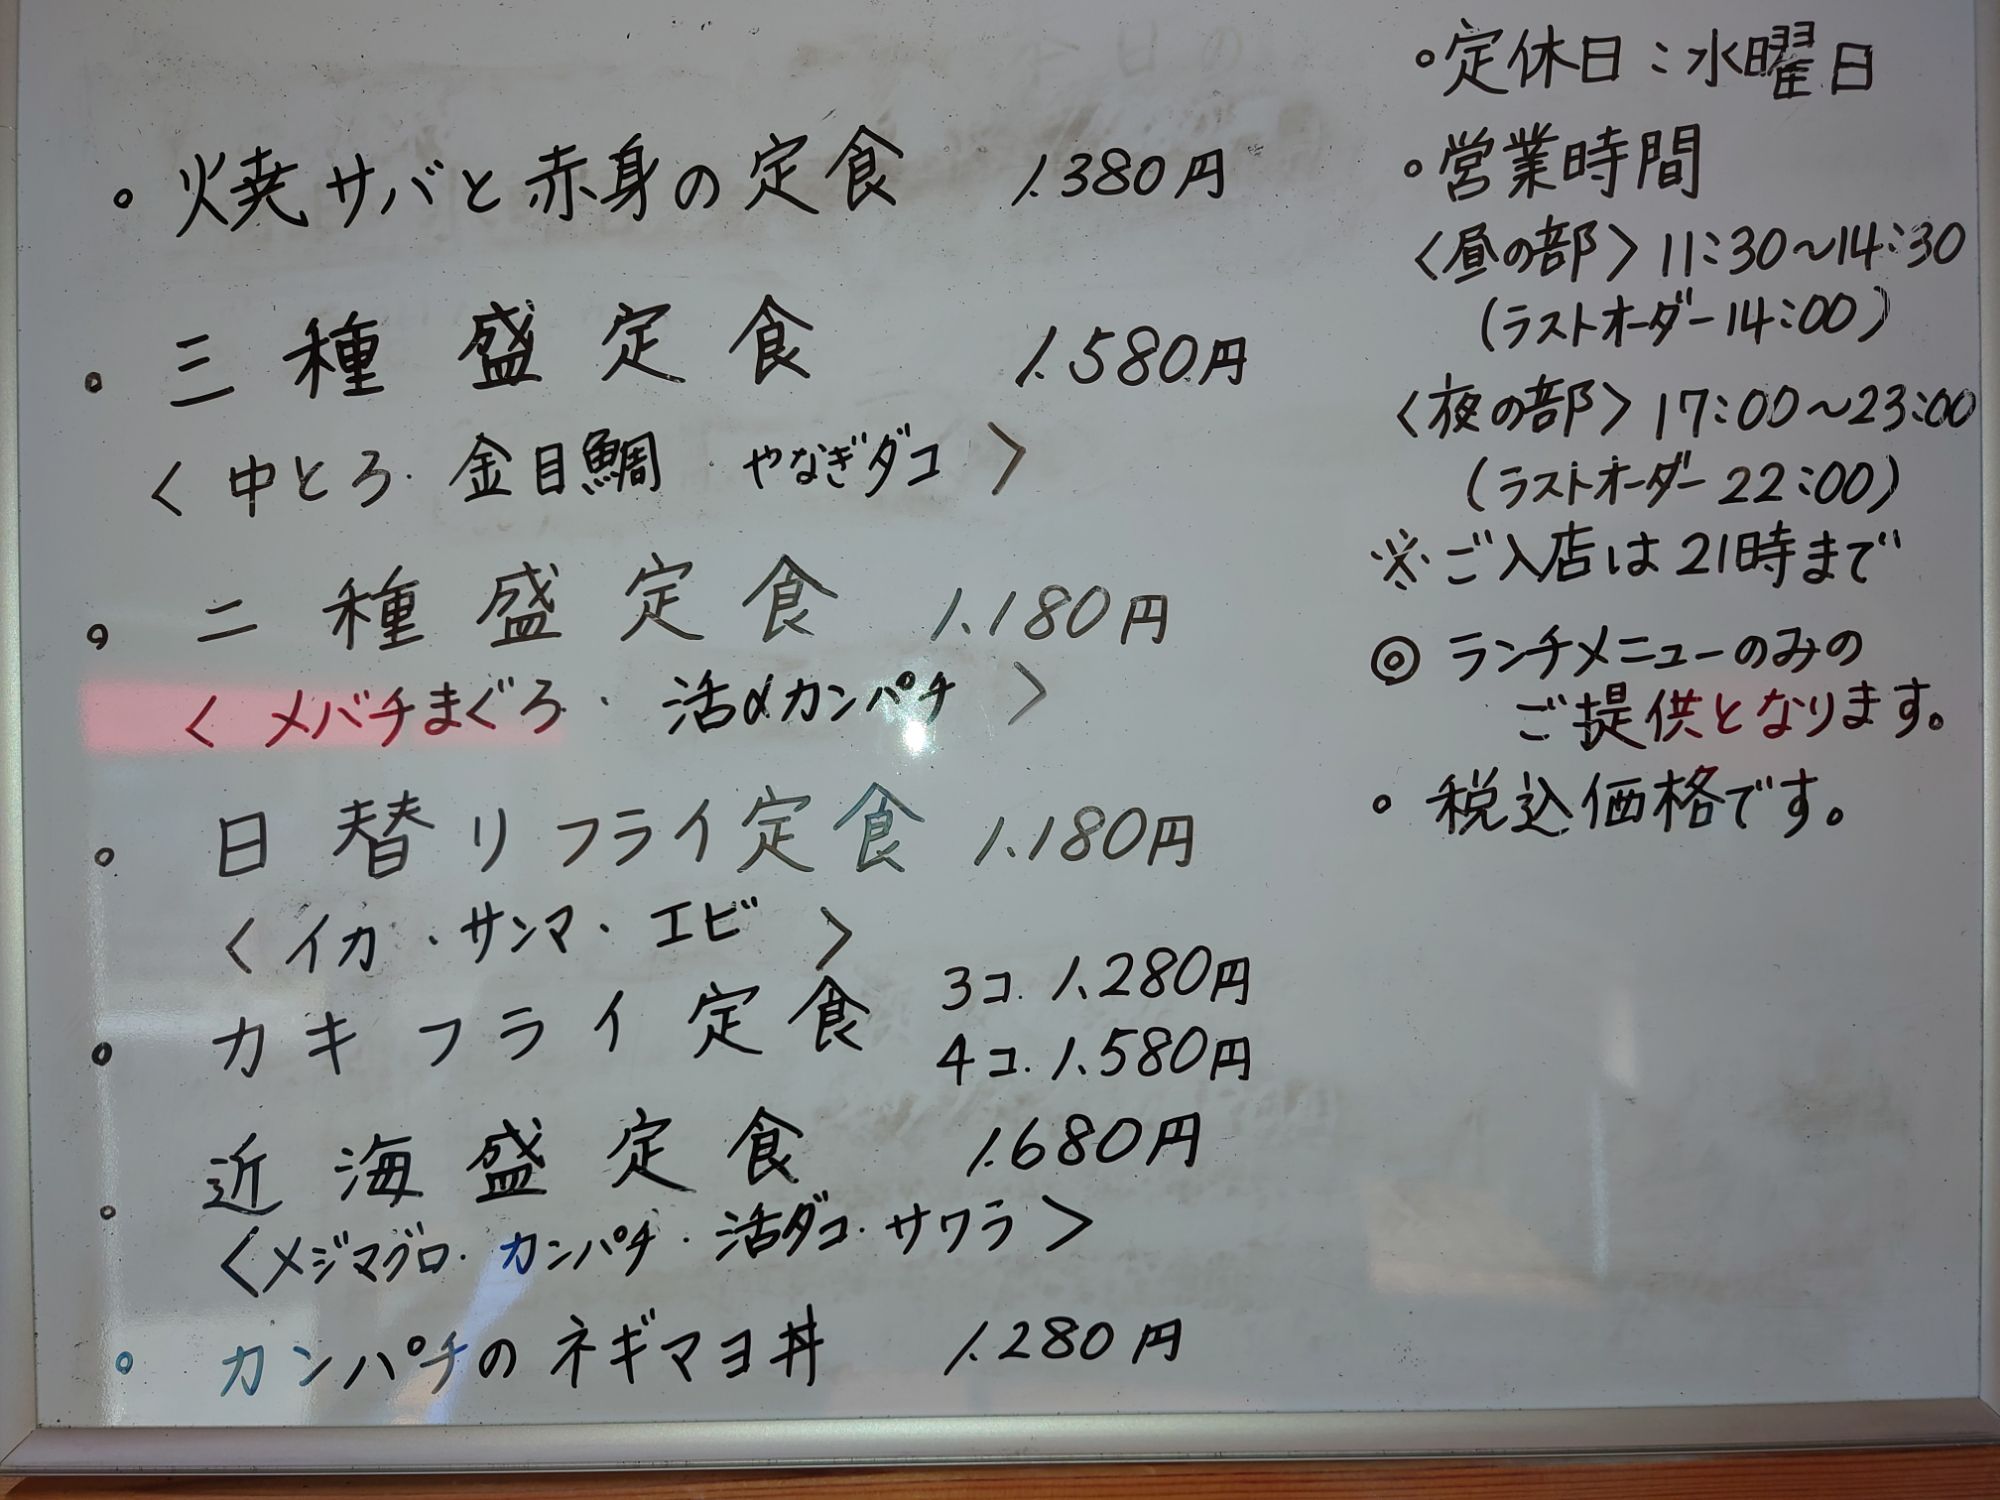 。焼サバと赤身の定食 1.380円
。三種盛定食 1.580円
〈中とろ・金目鯛・やなぎダコ〉
。二種盛定食 1、180円
〈メバチまぐろ・活〆カンパチ〉
。日替りフライ定食 1、180円
〈イカ・サンマ・エビ〉
。カキフライ定食 3コ. 1、280円
4コ. 1、580円
。近海盛定食 1.680円
〈メジマグロ・カンパチ・活ダコ・サワラ〉
。カンパチのネギマヨ丼 1.280円
。定休日：水曜日
。営業時間
〈昼の部〉11:30〜14:30
(ラストオーダー14:00)
〈夜の部〉17:00〜23:00
(ラストオーダー22:00)
※ご入店は21時まで
◎ランチメニューのみの
ご提供となります。
。税込価格です。